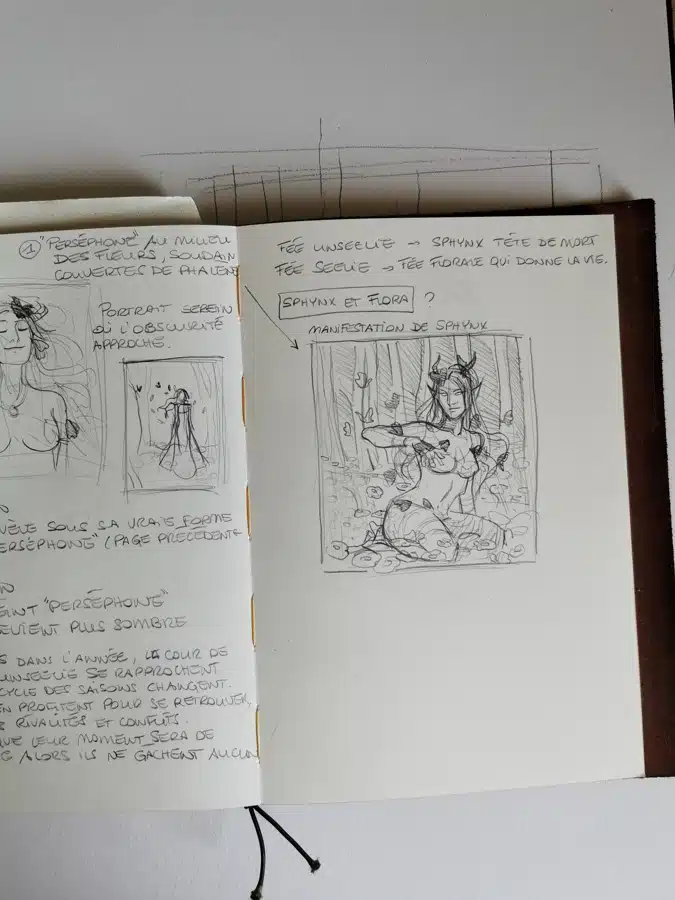 ① "PERSÉPHONE" AU MILIEU
DES FLEURS, SOUDAIN
COUVERTES DE PHALENE
PORTRAIT SEREIN
OÙ L'OBSCURITÉ
APPROCHE.
SOUS SA VRAIE FORME
"PERSÉPHONE" (PAGE PRECEDENTE
"PERSÉPHONE"
DEVIENT PLUS SOMBRE
DANS L'ANNÉE, LA COUR DE
UNSEELIE SE RAPPROCHENT
CYCLE DES SAISONS CHANGENT.
EN PROFITENT POUR SE RETROUVER,
RIVALITÉS ET CONFLITS.
QUE LEUR MOMENT SERA DE
ALORS ILS NE GACHENT AUCUN
FÉE UNSEELIE → SPHYNX TÊTE DE MORT
FÉE SEELIE → FÉE FLORALE QUI DONNE LA VIE.
SPHYNX ET FLORA ?
MANIFESTATION DE SPHYNX